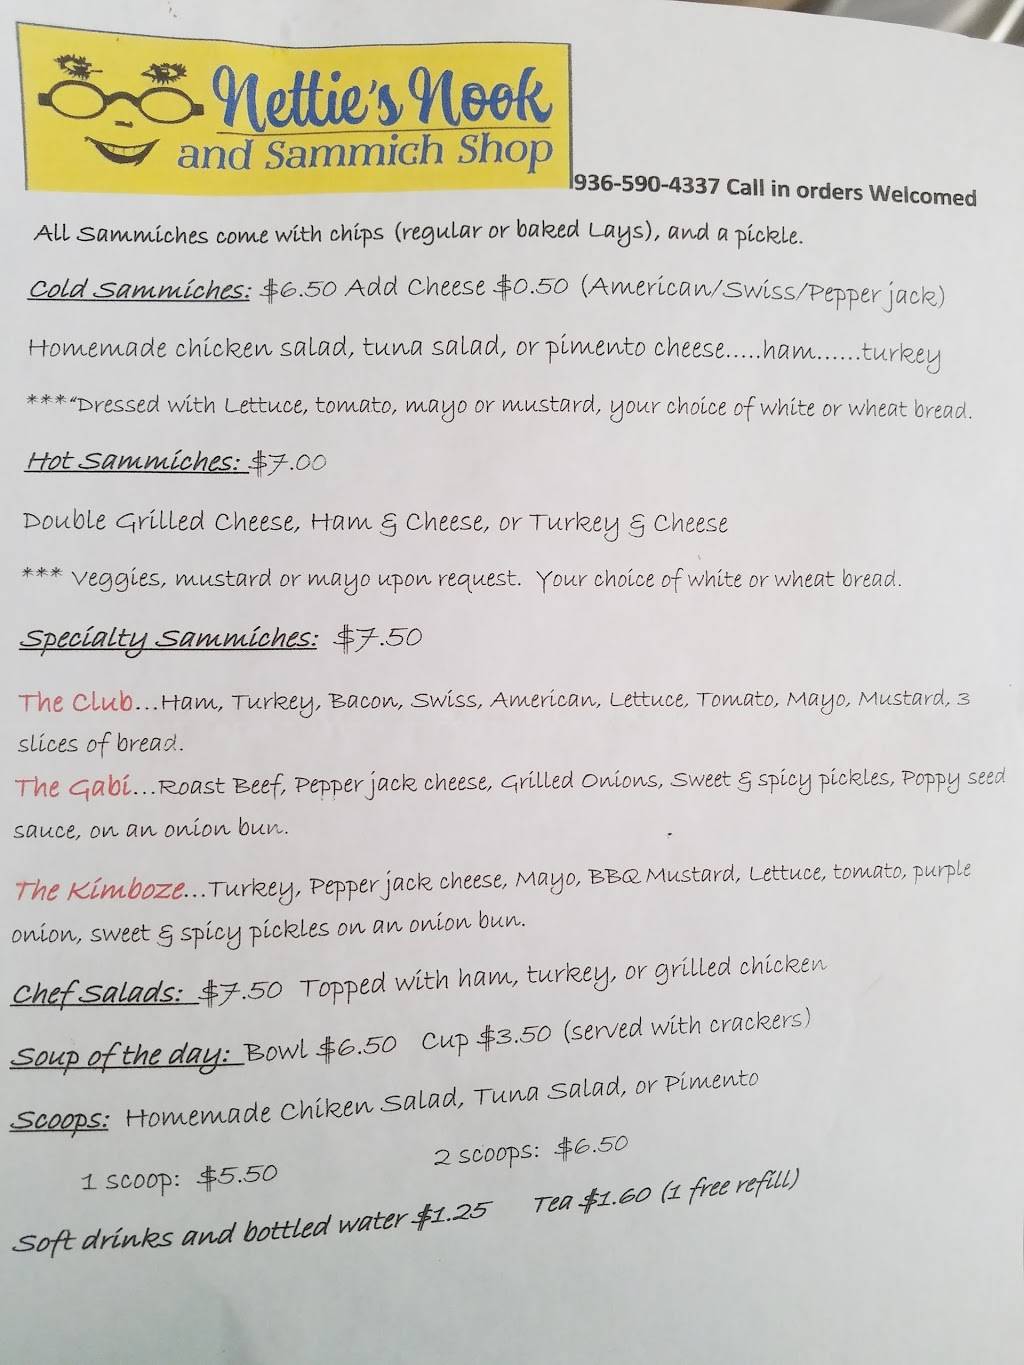 Nettie's Nook
and Sammich Shop
936-590-4337 Call in orders Welcomed
All Sammiches come with chips (regular or baked Lays), and a pickle.
Cold Sammiches: $6.50 Add Cheese $0.50 (American/Swiss/Pepper jack)
Homemade chicken salad, tuna salad, or pimento cheese.....ham......turkey
***"Dressed with Lettuce, tomato, mayo or mustard, your choice of white or wheat bread.
Hot Sammiches: $7.00
Double Grilled Cheese, Ham & Cheese, or Turkey & Cheese
*** Veggies, mustard or mayo upon request. Your choice of white or wheat bread.
Specialty Sammiches: $7.50
The Club...Ham, Turkey, Bacon, Swiss, American, Lettuce, Tomato, Mayo, Mustard, 3
slices of bread.
The Gabi...Roast Beef, Pepper jack cheese, Grilled Onions, Sweet & spicy pickles, Poppy seed
sauce, on an onion bun.
The Kimboze...Turkey, Pepper jack cheese, Mayo, BBQ Mustard, Lettuce, tomato, purple
onion, sweet & spicy pickles on an onion bun.
Chef Salads: $7.50 Topped with ham, turkey, or grilled chicken
Soup of the day: Bowl $6.50 Cup $3.50 (served with crackers)
Scoops: Homemade Chiken Salad, Tuna Salad, or Pimento
1 scoop: $5.50 2 scoops: $6.50
Soft drinks and bottled water $1.25 Tea $1.60 (1 free refill)